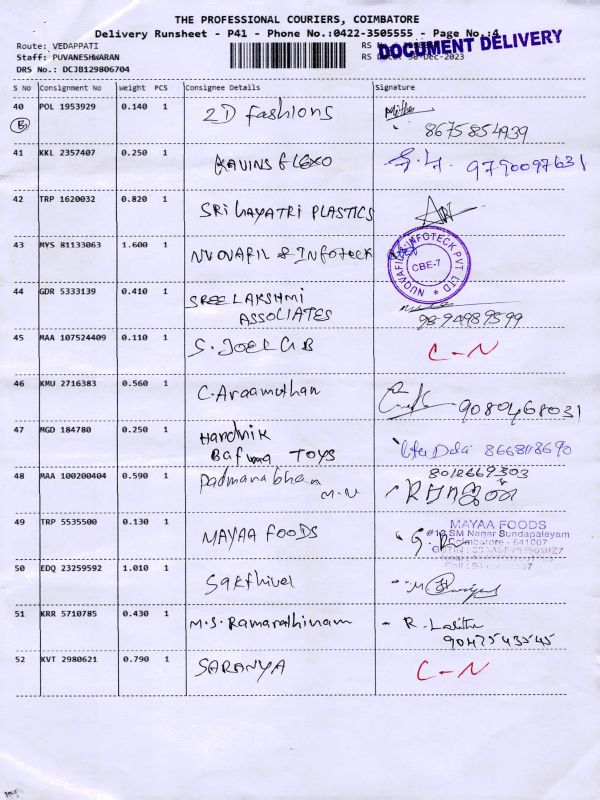 THE PROFESSIONAL COURIERS, COIMBATORE
Delivery Runsheet - P41 - Phone No.:0422-3505555 - Page No.:4
Route: VEDAPPATI
Staff: PUVANESHWARAN
DRS No.: DCJB129806704
RS No
RS Date: 30-Dec-2023
DOCUMENT DELIVERY
S No Consignment No Weight PCS Consignee Details Signature
40 POL 1953929 0.140 1 2D fashions
B
8675854939
41 KKL 2357407 0.250 1 KAVINS FLEXO
9790097631
42 TRP 1620032 0.820 1 SRI GAYATRI PLASTICS
43 MYS 81133063 1.600 1 NUOVAFIL & INfoteck
NUOVAFIL INFOTECK PVT LTD
CBE-7
44 GDR 5333139 0.410 1 SREE LAKSHMI
ASSOCIATES
9894989599
45 MAA 107524409 0.110 1 S. JOEL
C-N
46 KMU 2716383 0.560 1 C. Araamuthan
9080468031
47 MGD 184780 0.250 1 Hardnik
Bafna TOYS
8668118690
48 MAA 100200404 0.590 1 Padmanabhan
M.N
8012669303
49 TRP 5535500 0.130 1 MAYAA FOODS
MAYAA FOODS
#12 SM Nagar Sundapalayam
Coimbatore - 641007
50 EDQ 23259592 1.010 1 Sakthivel
51 KRR 5710785 0.430 1 M.S. Ramarathinam
R. Lalitha
9047543545
52 KVT 2980621 0.790 1 SARANYA
C-N